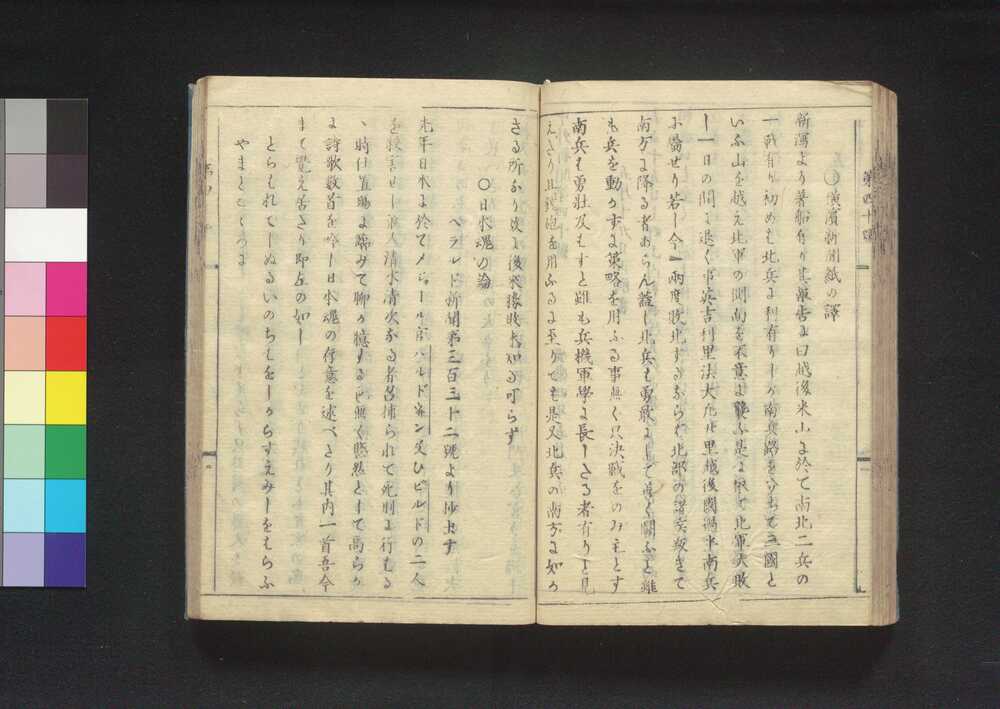 第四十四
○横濱新聞紙の譯
新潟より着船有り其報告に曰越後米山に於て南北二兵の
一戦有り初めは北兵に利有りしが南兵路を分ちて三國と
いふ山を越え北軍の側面を不意に襲ふ是に依て北軍大敗
し一日の間に退く事英吉利里法大凡 里越後國過半南兵
に属せり若し今一両度敗北するならば北部の諸侯叛きて
南方に降る者あらん蓋し北兵も勇敢にして善く闘ふと雖
も兵を動かすに策略を用ふる事無く只決戦をのみ主とす
南兵も勇壮及もずと雖も兵機軍學に長したる者有りと見
えたり且銃炮を用ふるに至りても是又北兵の南方に如か
ざる所なり次に後代勝敗は知る可らず
ヘラルド新聞第三百三十二號より抄出す
○日本魂の論
先年日本に於てメジョール官バルドウヰン及ひビルドの二人
を殺害せし浪人清水清次なる者召捕られて死刑に行はる
ゝ時仕置場に臨みて聊か臆する色無く悠然として高らか
に詩歌数首を吟し日本魂の存意を述べたり其内一首吾今
まて覚え居たり即左の如し
とらはれてしぬるいのちはをしからすえみしをはらふ
やまとこゝろに